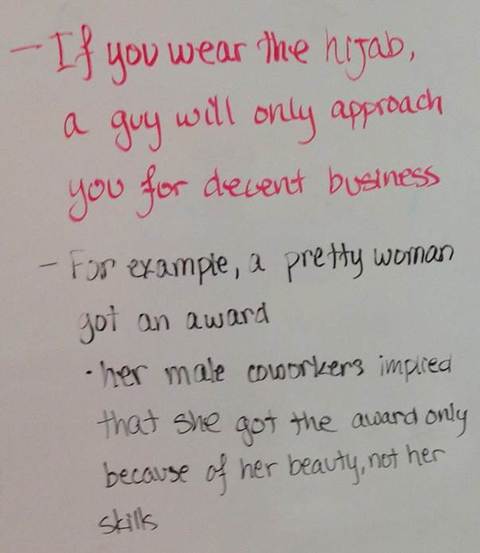 - If you wear the hijab,
a guy will only approach
you for decent business
- For example, a pretty woman
got an award
• her male coworkers implied
that she got the award only
because of her beauty, not her
skills